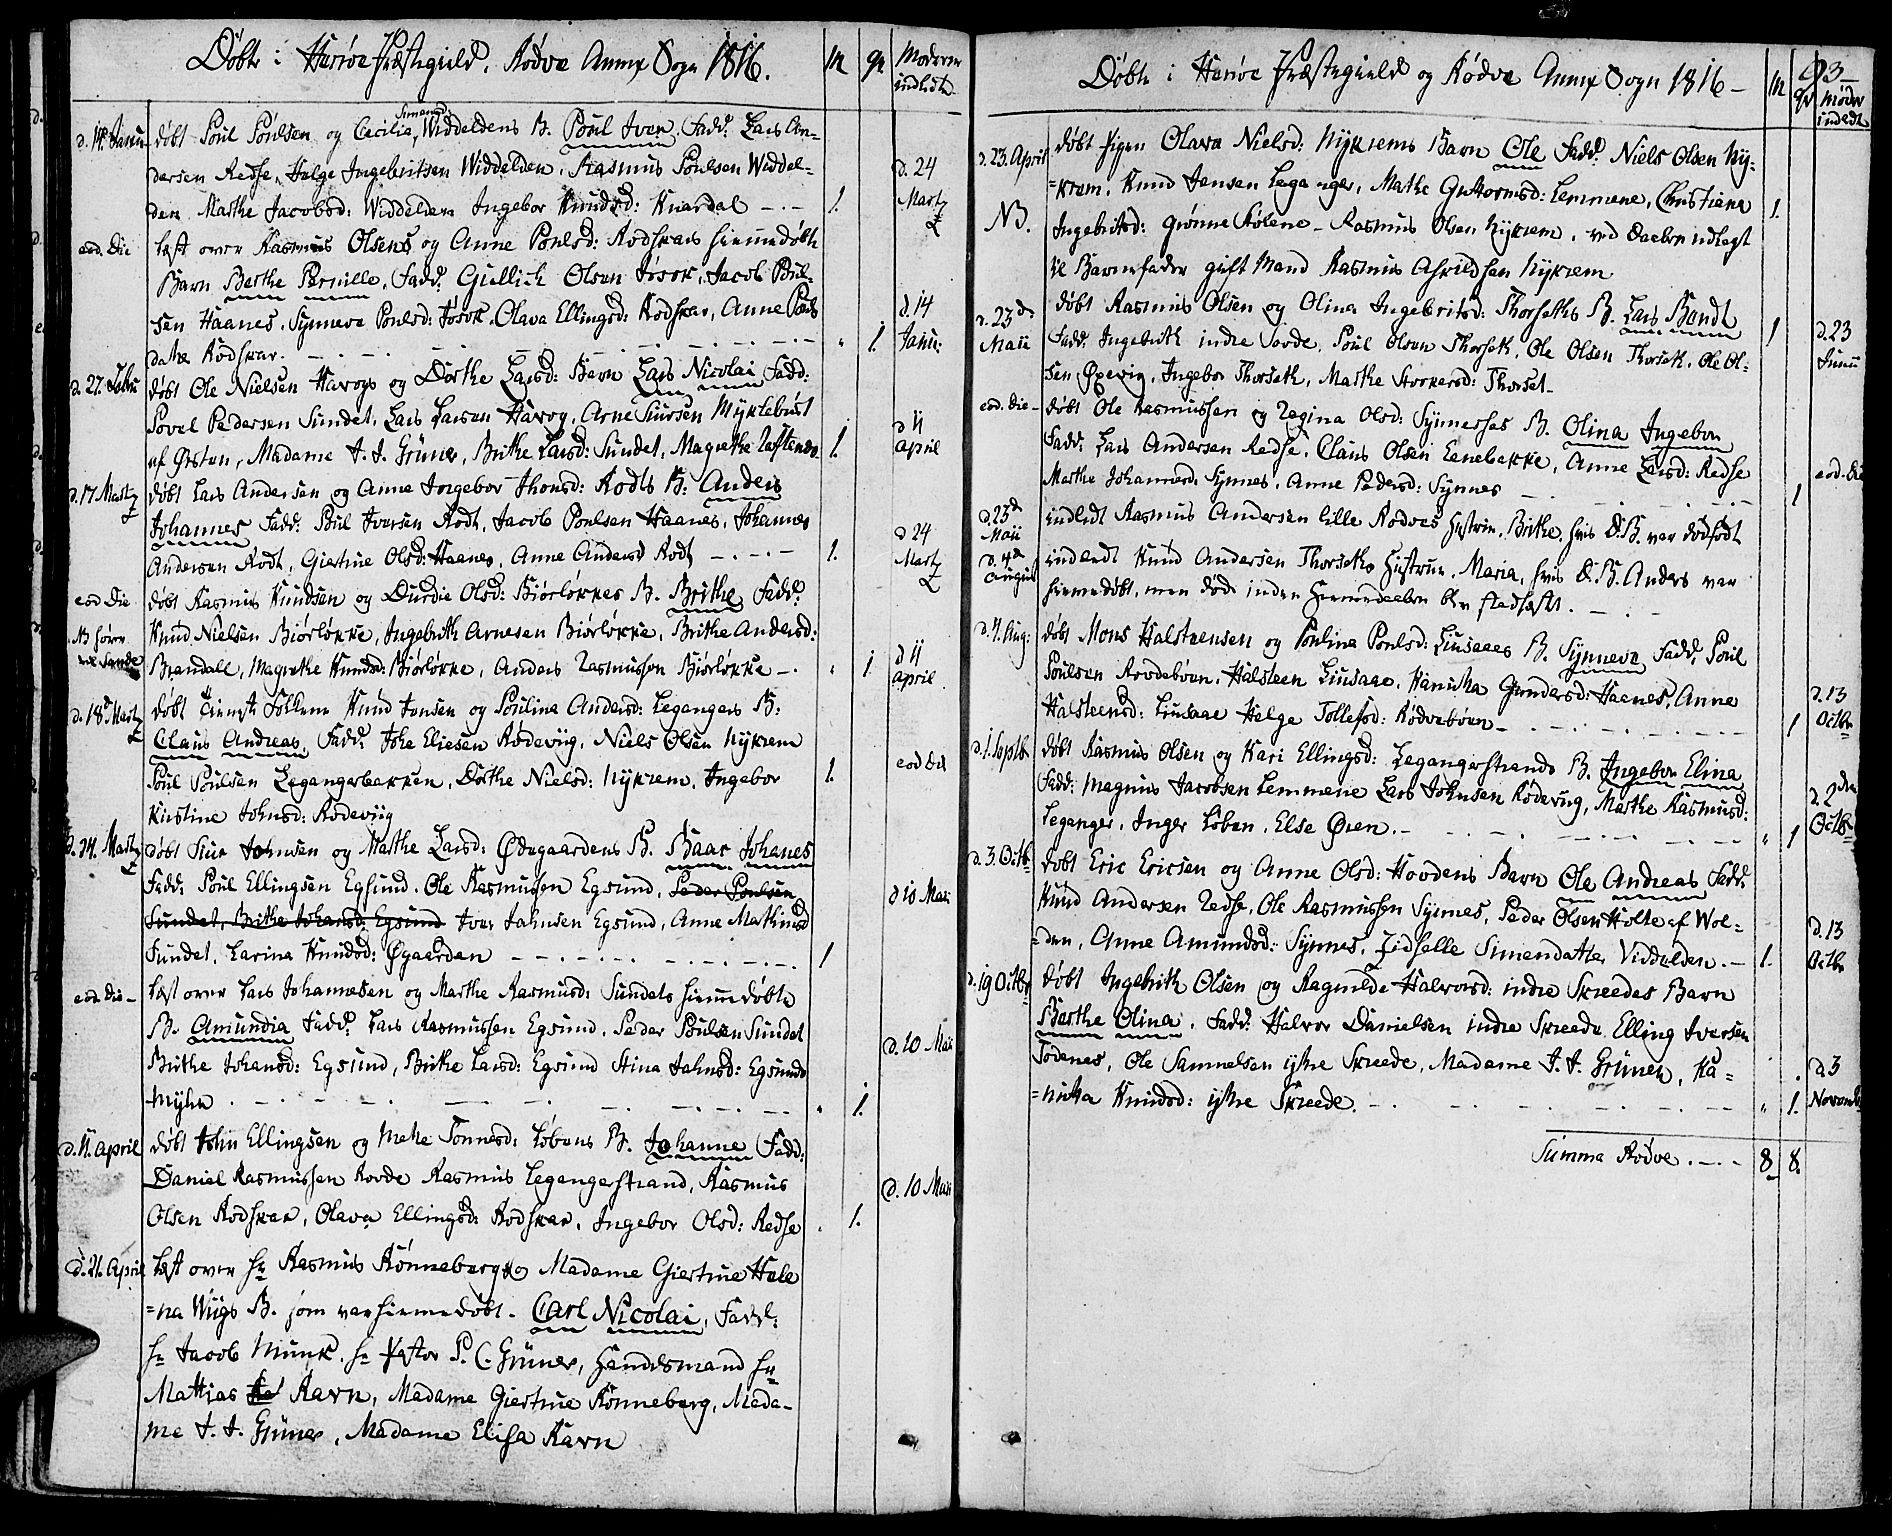 Døbte i Herøe Præstegield, Rødve Annex Sogn 1816. M Qv Moderen indledte
d. 14. Janu. døbt Poul Poulsen og Cecilia Simensd Widdeldens B. Poul Iver. Fadd. Lars An-
dersen Redse, Helge Ingebritsen Widdelden, Rasmus Poulsen Widdel- d. 24
den Marthe Jacobsd: Widdelden Ingebor Knudsd: Kvardal 1. Martz
eod. Die læst over Rasmus Olsens og Anne Poulsd: Rodskars hiemmedøbte
Barn Berthe Pernille, Fadd. Gullich Olsen Jøsok, Jacob Poul-
sen Haanes, Synneve Poulsd: Jøsok, Olava Ellingsd: Rodskar, Anne Pouls d. 14
datr. Rodskar. " 1. Janu:
d. 27. Febru døbt Ole Nielsen Havøys og Dorthe Larsd: Barn Lars Nicolai Fadd:
Povel Pedersen Sundet, Lars Larsen Havøy, Arne Siursen Myklebust d. 11
af Ørsten, Madame J. J. Grüner, Brithe Larsd: Sundet, Magrethe 1. April
d. 17 Martz døbt Lars Andersen og Anne Ingebor Jhonsd: Rodts B: Anders
Johannes Fadd: Poul Iversen Rodt, Jacob Poulsen Haanes, Johannes d. 24
Andersen Rodt, Giertine Olsd: Haanes, Anne Andersd Rodt 1. Martz
eod Die døbt Rasmus Knudsen og Durdie Olsd: Biørløkkes B. Brithe, Fadd.
NB hører til Sande Knud Nielsen Biørløkke, Ingebrith Arnesen Biørløkke, Brithe Andersd: d. 11
Brandall, Magrethe Knudsd: Biørløkke, Anders Rasmussen Biørløkke " 1 April
d. 18de Martz døbt Tieneste Folkene Knud Jensen og Poulina Andersd: Legangers B:
Claus Andreas, Fadd. Johe Eliesen Rødeviig, Niels Olsen Nykrem eod Die
Poul Poulsen Legangerbakken, Dorthe Nielsd: Nykrem, Ingebor 1.
Kirstine Johnsd: Rødeviig
d. 24. Martz døbt Siur Johnsen og Marthe Larsd: Ødegaardens B. Baar Johanes
Fadd: Poul Ellingsen Egsund, Ole Rasmussen Egsund, Peder Poulsen d 10 Maii
Sundet, Brithe Johansd: Egsund Iver Johnsen Egsund, Anne Mathiesd
Sundet, Larina Knudsd: Øgaarden 1
eod. Die læst over Lars Johannesen og Marthe Rasmusd: Sundets hiemmedøbte
B. Amundia Fadd. Lars Rasmussen Egsund, Peder Poulsen Sundet d. 10 Maii
Brithe Johansd: Egsund, Brithe Larsd: Egsund Stina Johnsd: Egsunds
Myhr. " 1.
d. 11. April døbt John Ellingsen og Mette Tønnesd: Løbens B. Johanne Fadd:
Daniel Rasmussen Rovde Rasmus Legangerstrand, Rasmus d. 10 Maii
Olsen Rodskar, Olava Ellingsd: Rodskar, Ingebor Olsd: Redse 1.
d. 21. April læst over Hr Rasmus Rønneberg og Madame Giertine Hele
=na Wiigs B. som var hiemmedøbt. Carl Nicolai, Fadd:
Hr Jacob Munk, Hr Pastor P. C. Grüner, Handelsmand Hr
Mattias Ravn, Madame Giertine Rønneberg, Mada-
me J. J. Grüner, Madame Elisa Ravn
Døbte i Herøe Præstegield og Rødve Annex Sogn 1816 M Qv 93 Møder indledt
d. 23. April døbt Pigen Olava Nielsd: Nykrems Barn Ole Fadd. Niels Olsen Ny-
=krem, Knud Jensen Leganger, Mathe Guttormsd: Lemmene, Christiana 1.
NB. Ingebritsd: Grønne Stolene - Rasmus Olsen Nykrem, ved Daaben udlagt
til Barnefader gift Mand Rasmus Asrildsen Nykrem
d. 23de Maii døbt Rasmus Olsen og Olina Ingebritsd: Thorseths B. Lars Bendt 1 d. 23
Fadd. Ingebrith indre Sørde, Poul Olsen Thorseth, Ole Olsen Thorseth, Ole Ol- Junii
sen Øxevig, Ingebor Thorseth, Marthe Thorset
eod. Die døbt Ole Rasmussen og Regina Olsd: Synnesses B. Olina Ingebor
Fadd. Lars Andersen Redse, Claus Olsen Eenebakke, Anne Larsd: Redse eod. Die
Marthe Johannesd. Synnes, Anne Pedersd: Synnes 1
d. 23de Maii indledt Rasmus Andersen lille Rødves Hustrue, Brithe, hvis D.B. var dødfødt
d. 4de Augus indledt Knud Andersen Thorseths Hustrue, Maria, hvis D.B. Anders var
hiemmedøbt, men døde inden Hiemmedaaben blev stadfæstet.
d. 4. Aug: døbt Mons Halsteensen og Poulina Poulsd: Liusaaes B. Synneva Fadd. Poul
Poulsen Rovdebøen, Halsteen Liusaae, Hanicka Gundersd: Haanes, Anne d. 13
Halsteensd: Liusaae Helge Tollefsd: Rødvebøen 1 Octbr
d. 1. Septb. døbt Rasmus Olsen og Kari Ellingsd: Legangerstrands B. Ingebor Elina
Fadd: Magnus Jacobsen Lemmene Lars Johnsen Rødeviig, Marthe Rasmusd: d. 2den
Leganger, Inger Løben, Else Øren. " 1 Octb
d. 3. Octb. døbt Eric Ericsen og Anne Olsd: Hovdens Barn Ole Andreas Fadd.
Knud Andersen Redse, Ole Rasmussen Synnes, Peder Olsen Holte af Wol- d. 13
=den, Anne Amundsd: Synnes, Zidselle Simensdatter Viddelden. 1. Octbr
d. 19 Octbr døbt Ingebrith Olsen og Ragnilde Halvorsd: indre Skreedes Barn
Berthe Olina, Fadd. Halvor Danielsen indre Skreede Elling Iversen
Tødenes, Ole Samuelsen ystre Skreede, Madame J. J. Grüner, Ha= d. 3
=nicka Knudsd: ystre Skreede. " 1. Novemb
Summa Rødve. 8 8.